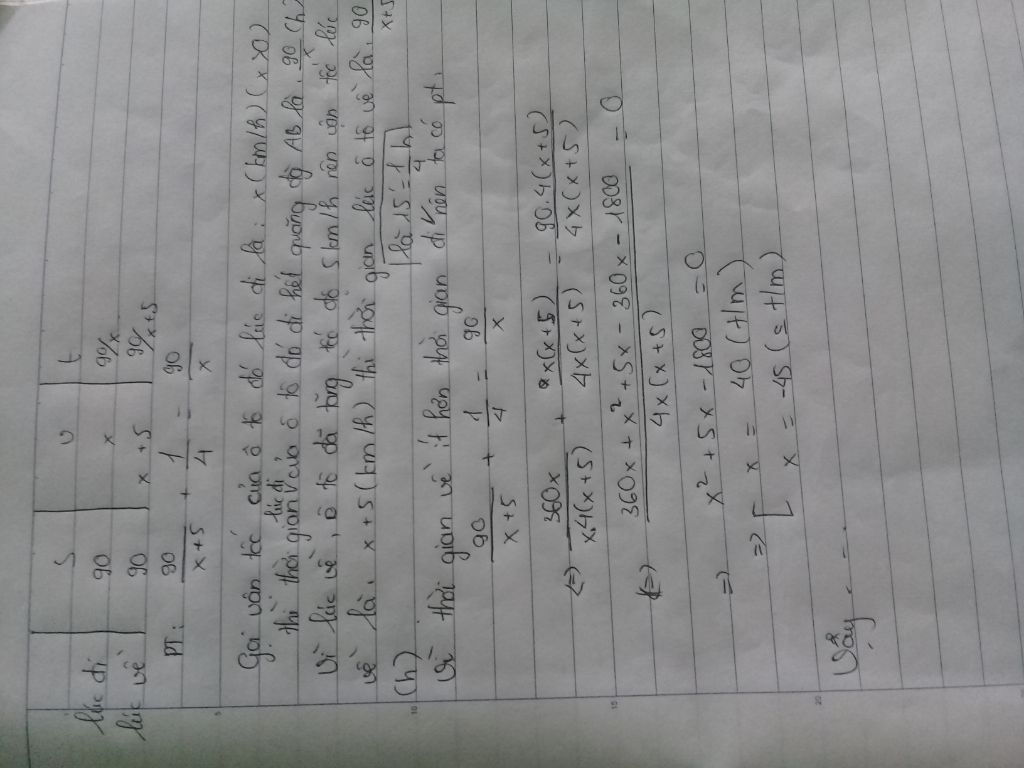 S v t
lúc đi 90 x 90/x
lúc về 90 x+5 90/x+5
PT: 90/x+5 + 1/4 = 90/x
Gọi vận tốc của ô tô đó lúc đi là: x (km/h) (x>0)
thì thời gian lúc đi của ô tô đó đi hết quãng đg AB là: 90/x (h)
Vì lúc về, ô tô đã tăng tốc độ 5km/h nên vận tốc lúc
về là: x+5 (km/h) thì thời gian lúc ô tô về là: 90/x+5
(h) là 15' = 1/4 h
Vì thời gian về ít hơn thời gian đi nên ta có pt:
90/x+5 + 1/4 = 90/x
<=> 360x/x.4(x+5) + x(x+5)/4x(x+5) = 90.4(x+5)/4x(x+5)
<=> 360x + x² + 5x - 360x - 1800/4x(x+5) = 0
=> x² + 5x - 1800 = 0
=> [ x = 40 (tm)
x = -45 (k tm)
Vậy...